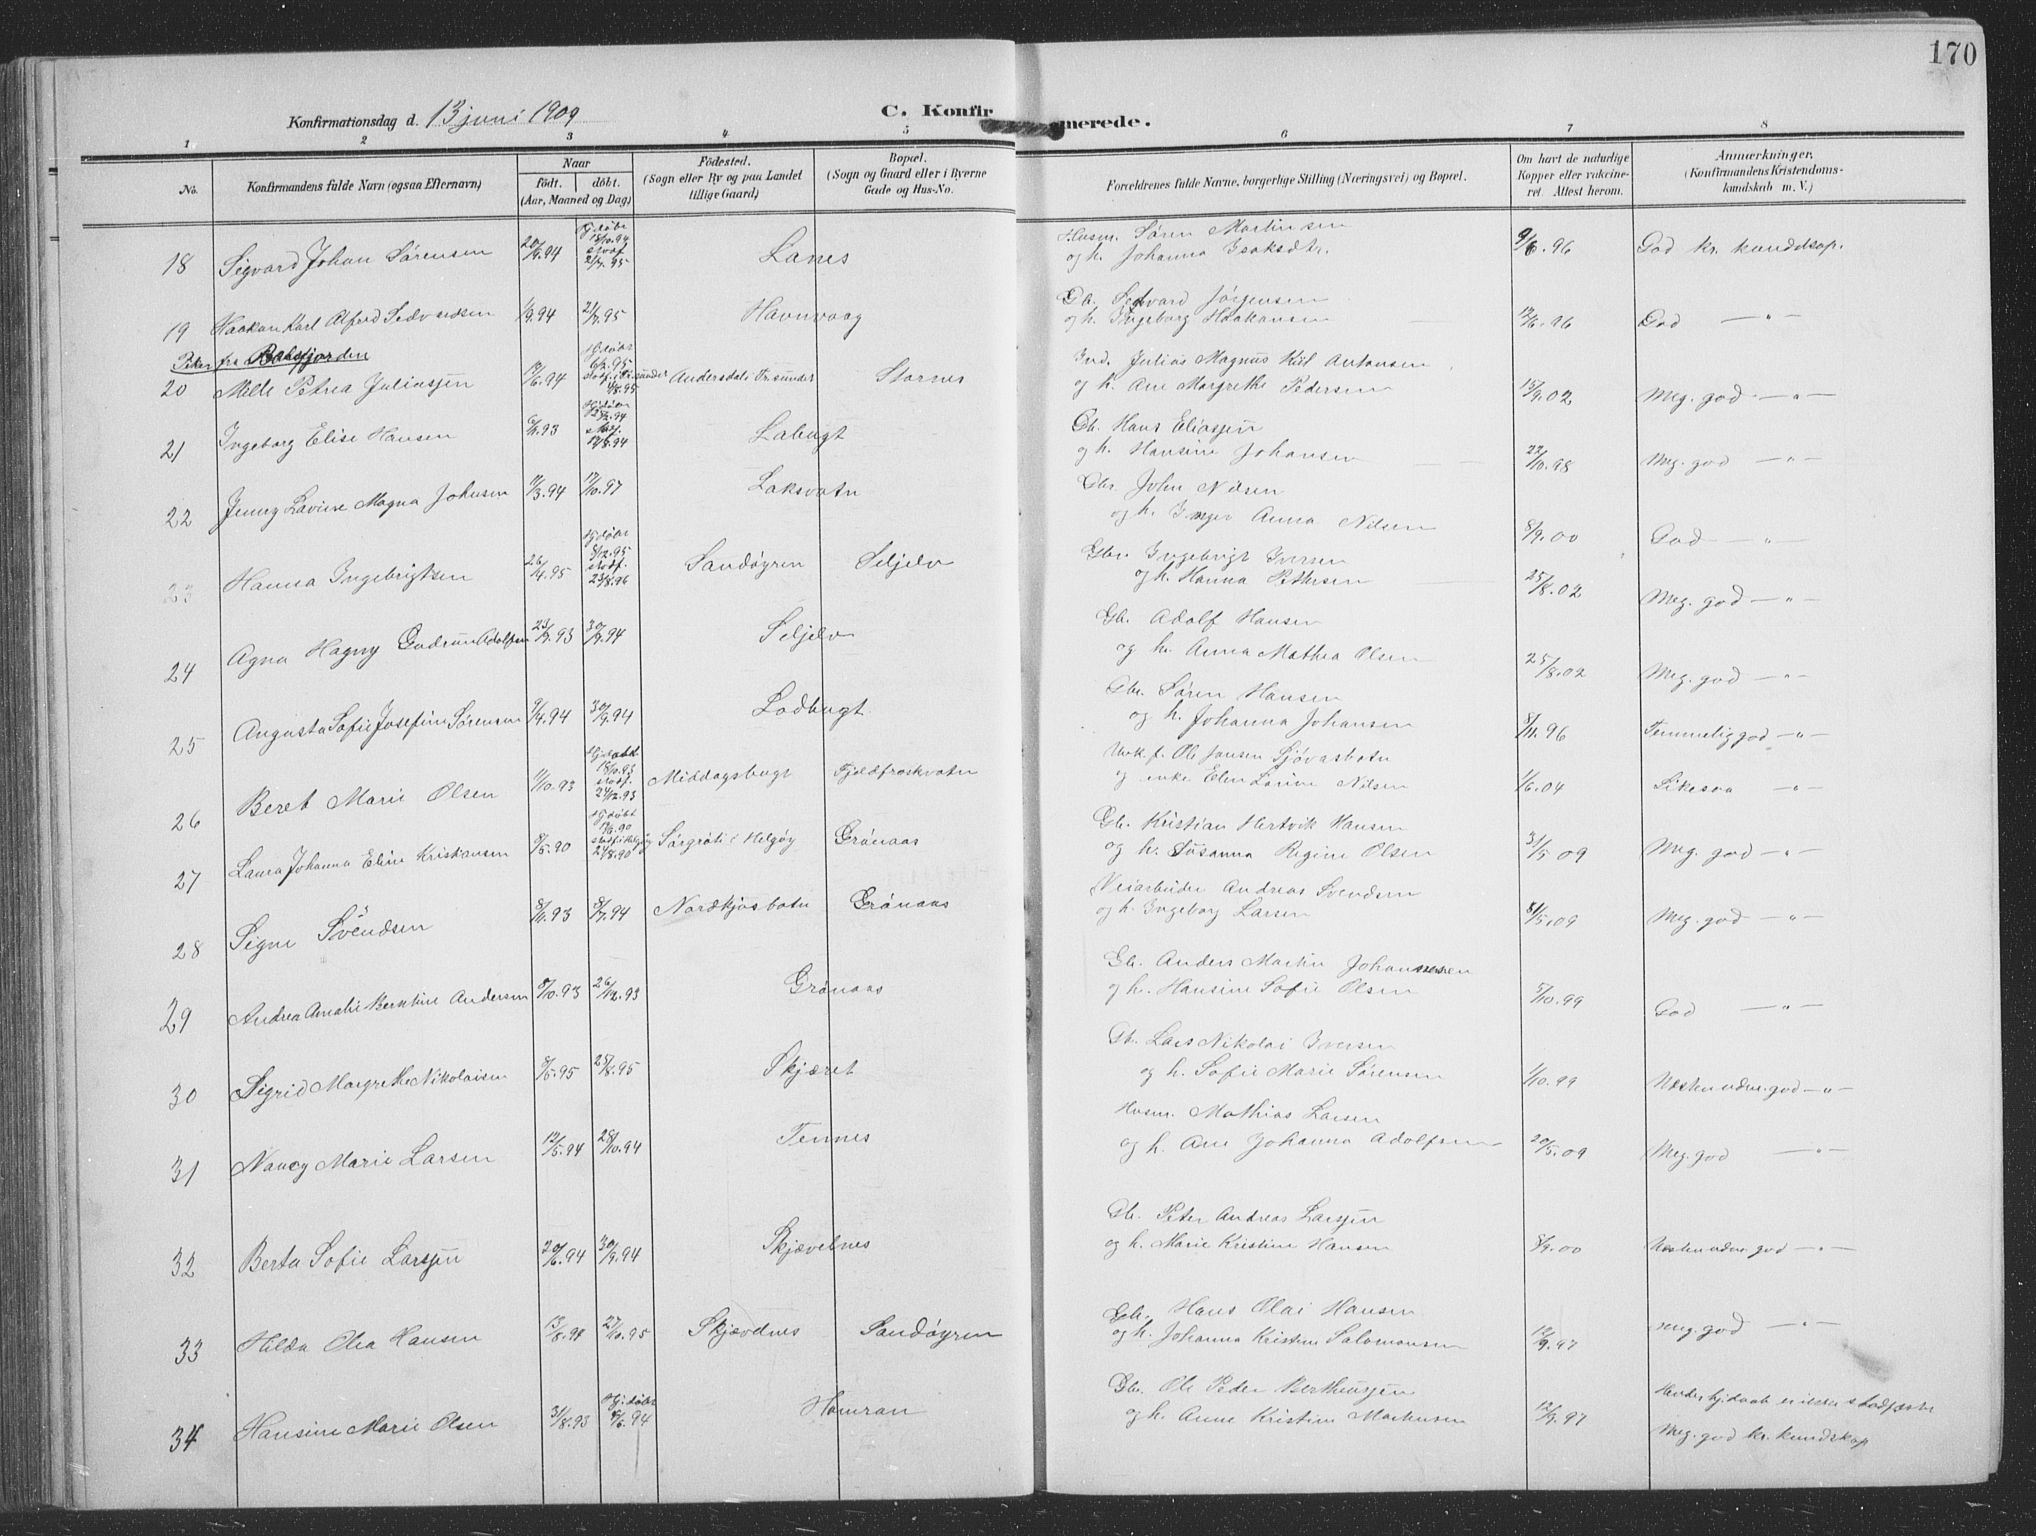 170
Konfirmationsdag d. 13 juni 1909
C. Konfirmerede.
1 2 3 4 5 6 7 8
No.
Konfirmandens fulde Navn (ogsaa Efternavn)
Naar
födt. döbt.
(Aar, Maaned og Dag)
Födested.
(Sogn eller By og paa Landet
tillige Gaard)
Bopæl.
(Sogn og Gaard eller i Byerne
Gade og Hus-No.
Forældrenes fulde Navne, borgerlige Stilling (Næringsvei) og Bopæl.
Om havt de naturlige
Kopper eller vakcine-
ret. Attest herom.
Anmærkninger.
(Konfirmandens Kristendoms-
kundskab m. V.)
18 Sigvard Johan Sørensen Lanes
Husm. Søren Martinsen
og h. Johanna Isaksdtr. 9/6.96 God kr. kunddsap.
19 Haakon Karl Alfred Sedvardsen 1/9.94 21/7.95 Havnvaag
Gb. Sedvard Jørgensen
og h. Ingeborg Haakansen 12/6.96 God — " —
Piker fra Balsfjorden
20 Mille Petrea Juliussen Andersdal i Tr.sundet Stornes
Ind. Julius Magnus Kiil Antonsen
og h. Ane Margrethe Pedersen 15/9.02 Meg. god — " —
21 Ingeborg Elise Hansen Labugt
Gb. Hans Eliassen
og h. Hansine Johansen 22/10.98 Meg. god — " —
22 Jenny Lavise Magna Johnsen 11/3.94 17/10.97 Laksvatn
Gbr. John Nilsen
og h. Inger Anna Nilsen 8/9.00 God — " —
23 Hanna Ingebrigtsen 26/4.95 Hjdøbt 8/12.95 stadf. 23/8.96 Sandøyren Seljelv
Gbr. Ingebrigt Iversen
og h. Hanna Pettersen 25/8.02 Meg. god — " —
24 Agna Hagny Gudrun Adolfsen 23/9.93 30/9.94 Seljelv
Gb. Adolf Hansen
og h. Anna Mathea Olsen 25/8.02 Meg. god — " —
25 Augusta Sofie Josefine Sørensen 9/4.94 30/9.94 Lodbugt
Gbr. Søren Hansen
og h. Johanna Johansen 8/11.96 Temmelig god — " —
26 Beret Marie Olsen 11/10.93 18/10.93 stadf. 24/12.93 Middagsbugt Fjeldfroskvatn
Ole Jansen Sjøvasbotn
og enke Elen Lovine Nilsen 1/6.04 Likesaa — " —
27 Laura Johanna Eline Kristiansen 8/5.90 Hjdøbt 24/8.90 i Helgøy Grønaas
Gb. Kristian Hertvik Hansen
og h. Susanna Regine Olsen 31/5 09 Meg. god — " —
28 Signe Svendsen 8/11.93 8/7.94 Nordkjosbotn Grønaas
Veiarbeider Andreas Svendsen
og h. Ingeborg Larsen 81/5.09 Meg. god — " —
29 Andrea Amalie Berntine Andersen 8/10.93 26/12.93 Grønaas
Gb. Anders Martin Johannesen
og h. Hansine Sofie Olsen 5/10.99 God — " —
30 Sigrid Margrethe Nikolaisen 8/5.95 25/8.95 Skjæret
Gb. Lars Nikolai Iversen
og h. Sofie Marie Sørensen 1/10.99 Næsten udm. god — " —
31 Nancy Marie Larsen 12/5.94 28/10.94 Tennes
Husm. Mathias Larsen
og h. Ane Johanna Adolfsen 20/5.09 Meg. god — " —
32 Berta Sofie Larssen 20/6.94 30/9.94 Skjævelnes
Gb. Peter Andreas Larssen
og h. Marie Kristine Hansen 8/9.00 Næsten udm. god — " —
33 Hilda Olea Hansen 13/8.94 27/10.95 Skjævelnes Sandøyren
Gb. Hans Olai Hansen
og h. Johanna Kristine Salamonsen 12/9.97 Meg. god — " —
34 Hansine Marie Olsen 31/8.93 Hjdøbt 9/6.94 Homran
Gbr. Ole Peder Bertheussen
og h. Anne Kristine Markussen 12/9.97 Hendes hjdaab er ikke stadfæstet
Meg. god kr. kundskap